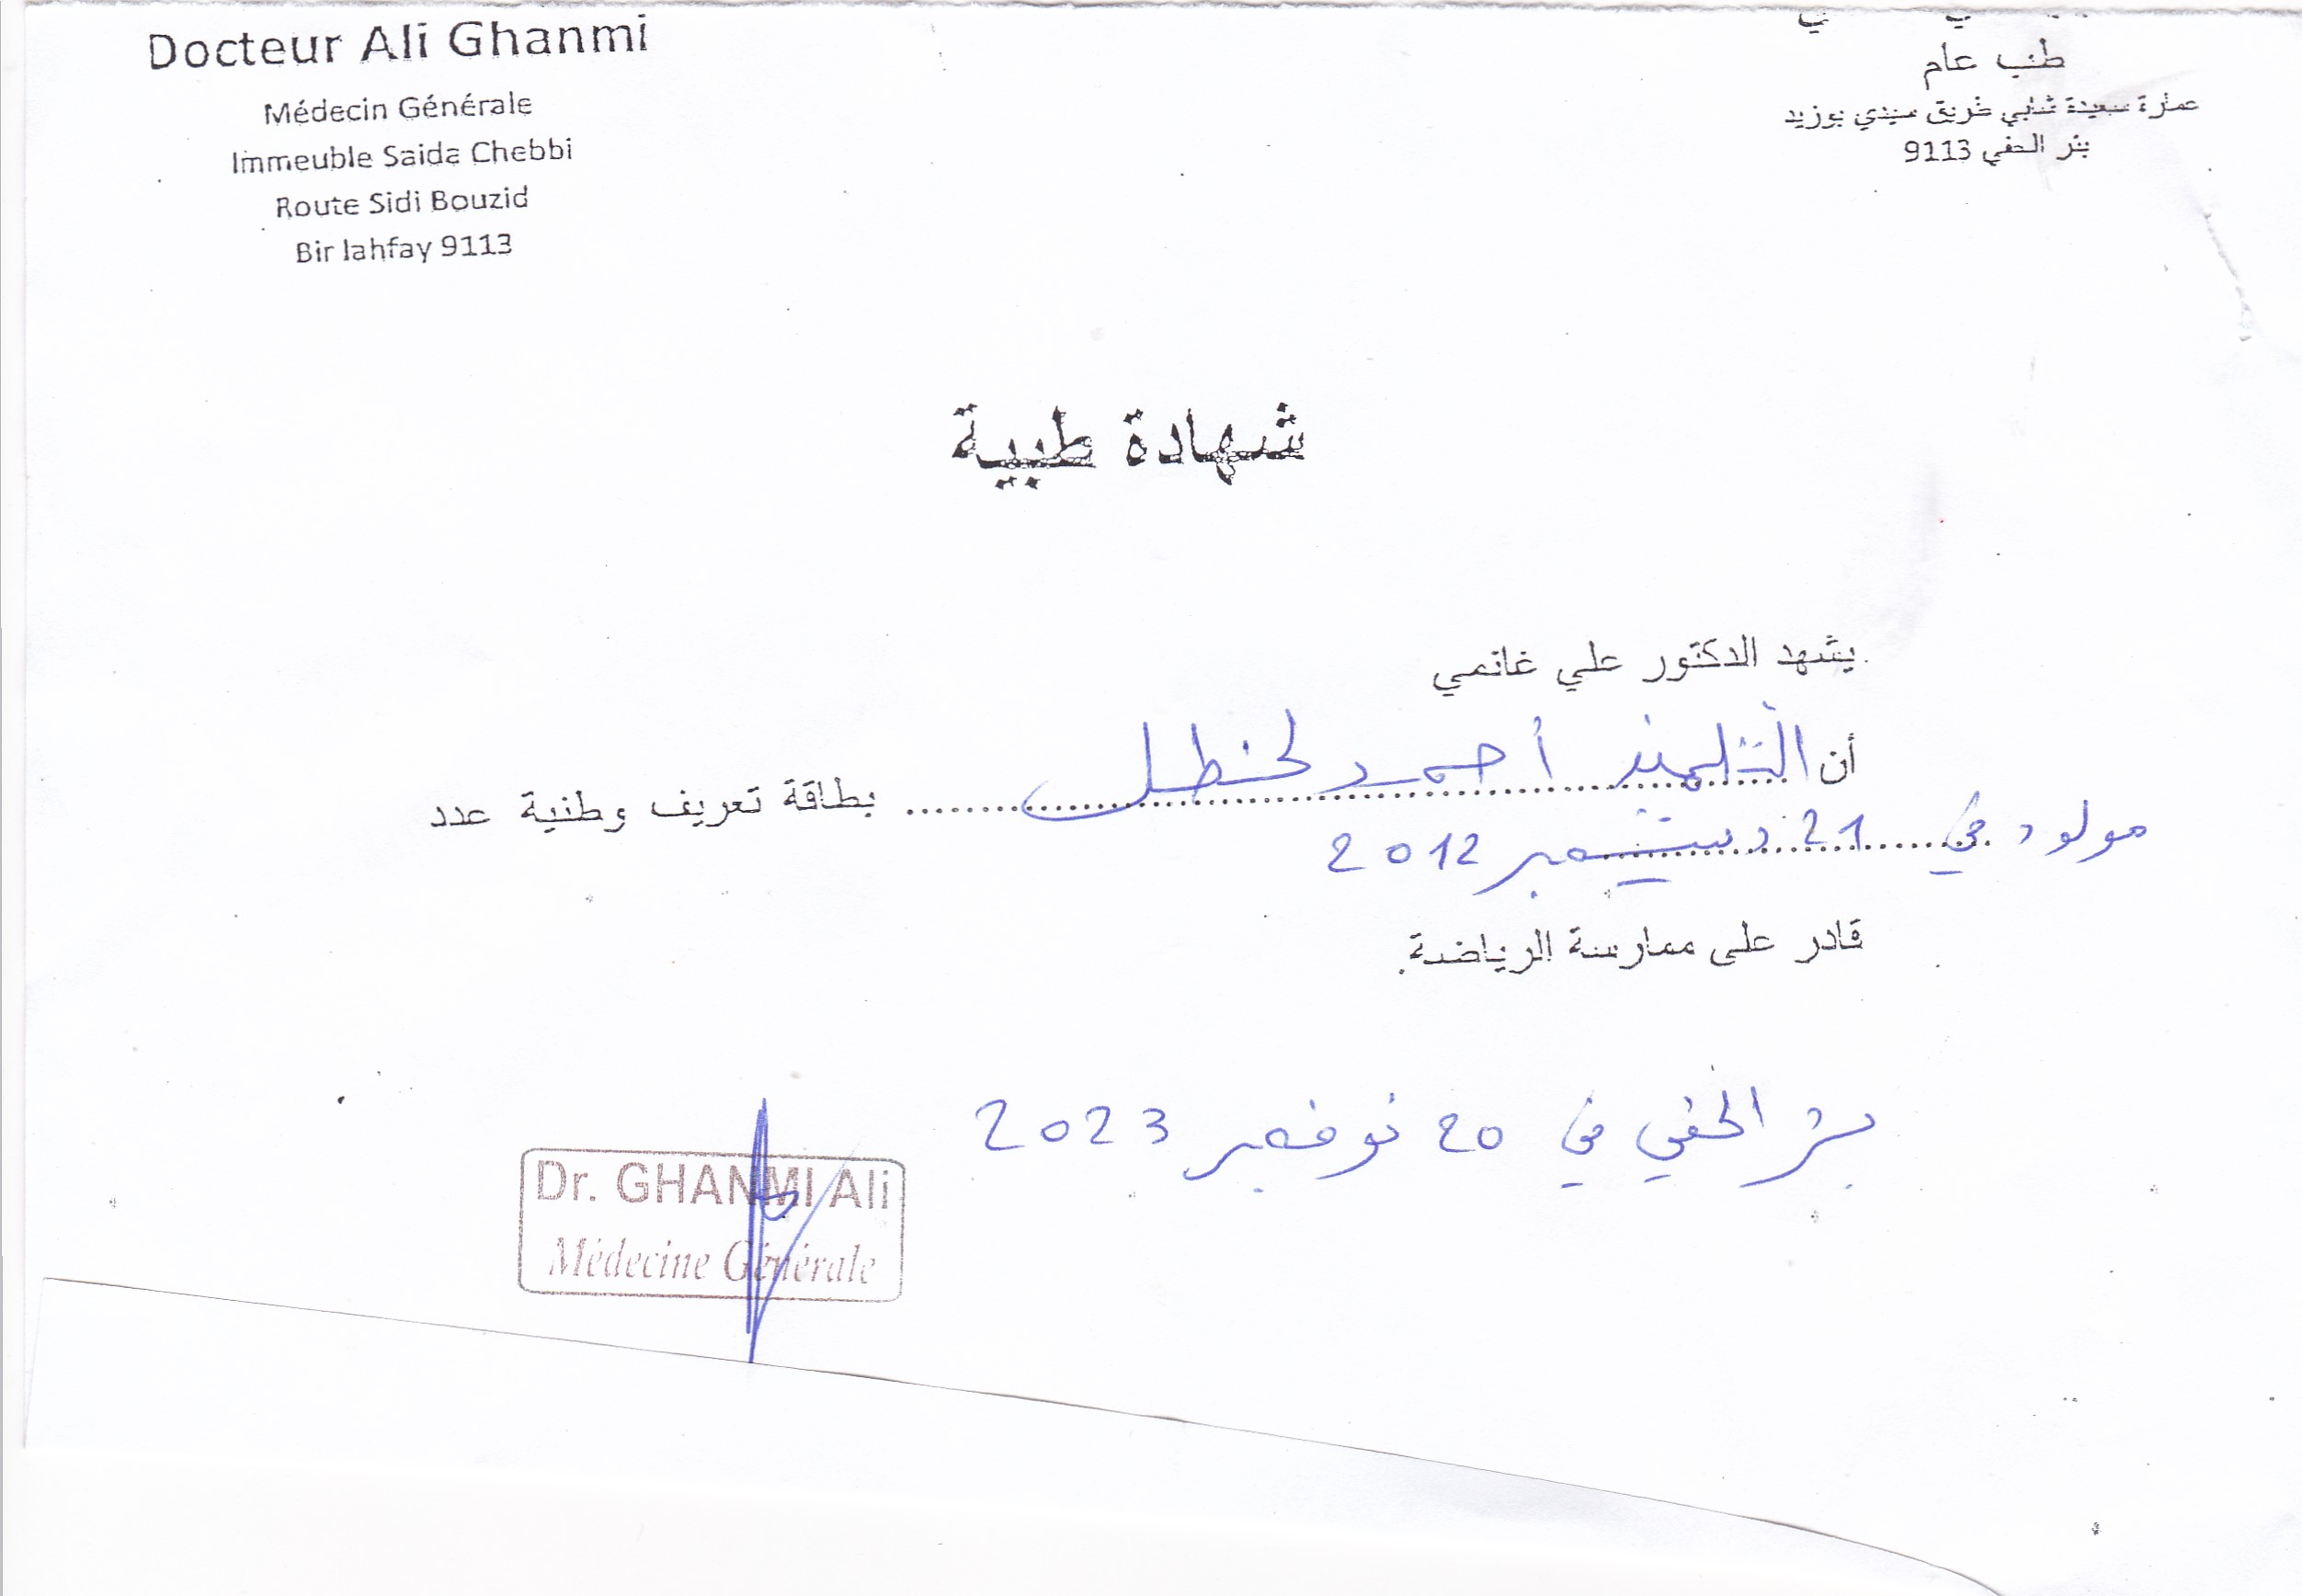 Docteur Ali Ghanmi
Médecin Générale
Immeuble Saida Chebbi
Route Sidi Bouzid
Bir lahfay 9113
طب عام
عمارة سعيدة شابي طريق سيدي بوزيد
بئر الحفي 9113
شهادة طبية
يشهد الدكتور علي غانمي
أن التلميذ أحمد لخطل بطاقة تعريف وطنية عدد
مولود في 21 ديسمبر 2012
قادر على ممارسة الرياضة.
بئر الحفي في 20 نوفمبر 2023
Dr. GHANMI Ali
Médecine Générale